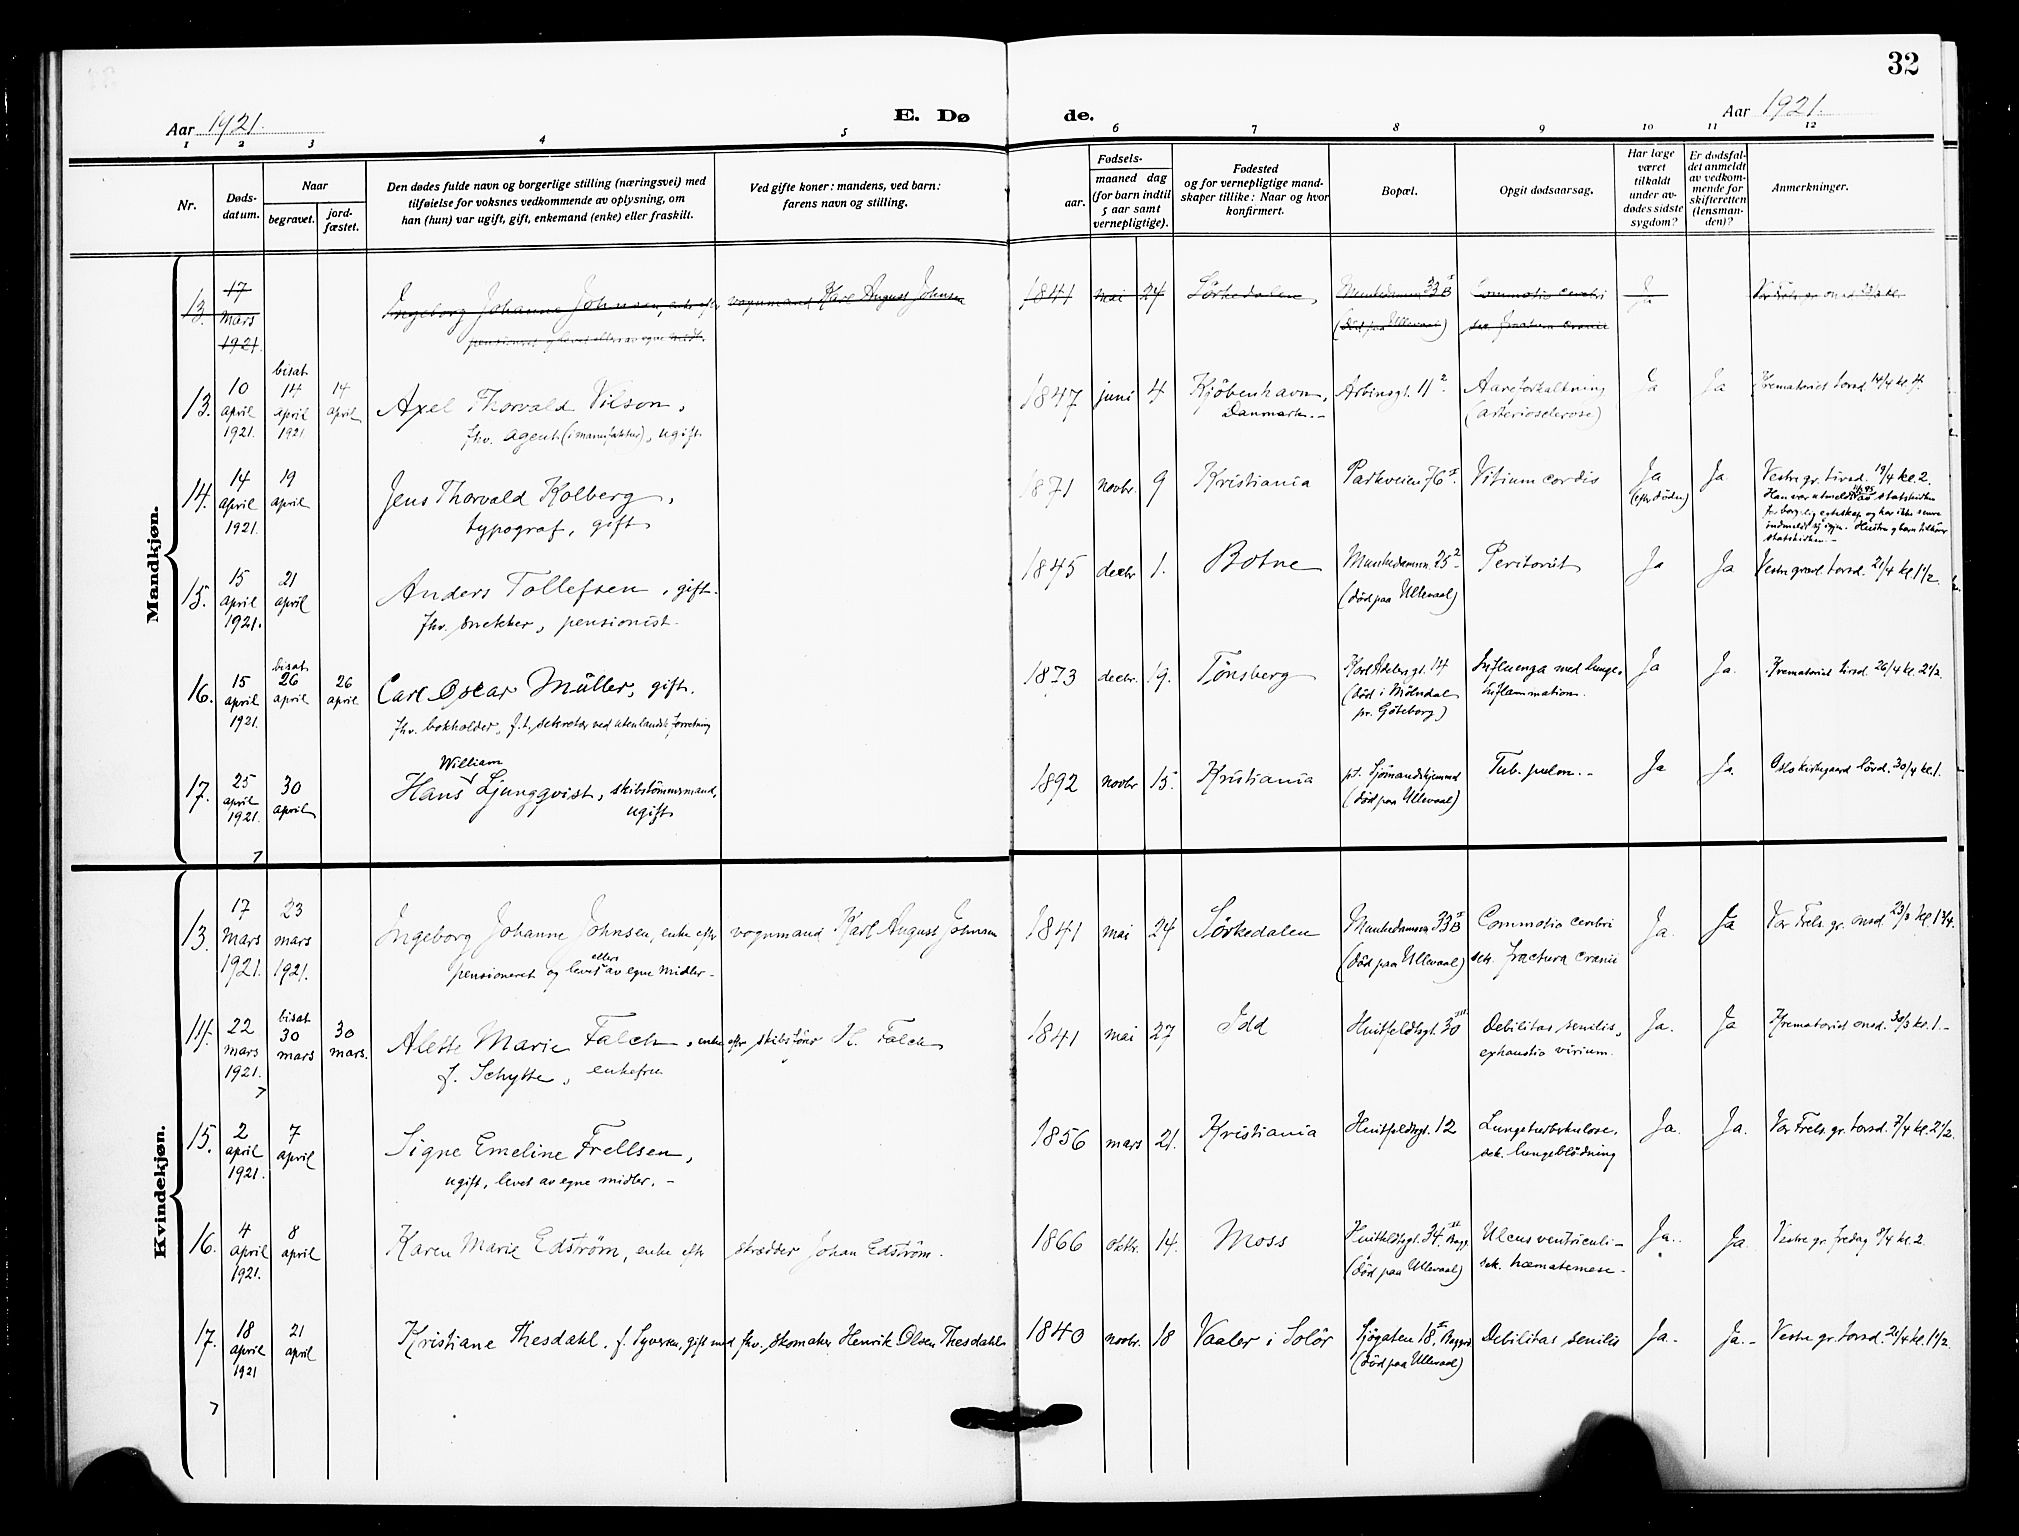 32
Aar 1921.
E. Dø de.
Aar 1921.
1 2 3 4 5 6 7 8 9 10 11 12
Nr.
Døds-
datum.
Naar
begravet.
jord-
fæstet.
Den dødes fulde navn og borgerlige stilling (næringsvei) med
tilføielse for voksnes vedkommende av oplysning, om
han (hun) var ugift, gift, enkemand (enke) eller fraskilt.
Ved gifte koner: mandens, ved barn:
farens navn og stilling.
Fødsels-
aar.
maaned dag
(for barn indtil
5 aar samt
vernepligtige).
Fødested
og for vernepligtige mand-
skaper tillike: Naar og hvor
konfirmert.
Bopæl.
Opgit dødsaarsag.
Har læge
været
tilkaldt
under av-
dødes sidste
sygdom?
Er dødsfal-
det anmeldt
av vedkom-
mende for
skifteretten
(lensman-
den)?
Anmerkninger.
Mandkjøn.
13.
17
mars
1921.
Ingeborg Johanne Johnsen, enke efter
pensioneret og levet ellers av egne midl.
vognmand Karl August Johnsen
1841 mai 24
Sørkedalen,
Munkedamsv. 33 B I
(død paa Ullevaal)
Commotio cerebri
sek. fractura cranii
Ja
Vor Frels. gr. onsd. 23/3 kl.
13.
10
april
1921.
bisat
14
april
1921
14
april
Axel Thorvald Vilson,
fhv. agent (i manufaktur), ugift
1847 juni 4
Kjöbenhavn,
Danmark.-
Arbinsgt. 11 2.
Aareforkalkning
(arteriosclerose)
Ja
Ja
Krematoriet torsd. 14/4 kl. 4.
14.
14
april
1921.
19
april
Jens Thorvald Kolberg,
typograf, gift
1871 novbr. 9
Kristiania
Parkveien 76 I
Vitium cordis
Ja
(efter døden)
Ja
Vestre gr. tirsd. 19/4 kl. 2.
Han var utmeldt av statskirken
for borgerlig egteskap og har ikke senere
indmeldt sig igjen. Hustru og barn tilhører
statskirken.-
15.
15
april
1921.
21
april
Anders Tollefsen, gift.
fhv. snekker, pensionist.
1845 decbr 1.
Botne
Munkedamsv. 25 2 -
(død paa Ullevaal)
Peritonit
Ja
Ja
Vestre gravl. torsd. 21/4 kl 1 1/2.
16.
15
april
1921.
bisat
26
april
26
april
Carl Oscar Müller, gift.
fhv. bokholder, f. t. sekretær ved utenlandsk forretning
1873 decbr. 19.
Tönsberg
Karl Adelersgt. 14
(død i Mölndal
pr. Göteborg)
Influenza med lunge-
inflammation.
Ja
Ja.
Krematoriet tirsd. 26/4 kl. 2 1/2.
17.
25
april
1921.
30
april
William
Hans Ljungqvist, skibstömmermand,
ugift
1892 novbr 15.
Kristiania
pt. Sjömandshjemmet
(død paa Ullevaal)
Tub. pulm. -
Ja
Ja.
Oslo kirkegaard lörd. 30/4 kl. 1.
7
Kvindekjøn.
13.
17
mars
1921.
23
mars
1921.
Ingeborg Johanne Johnsen, enke efter
pensioneret og levet ellers av egne midler -
vognmand Karl August Johnsen
1841 mai 24
Sörkedalen
Munkedamsvn 33 B I
(død paa Ullevaal)
Commotio cerebri
sek. fractura cranii
Ja.
Ja
Vor Frels. gr. onsd. 23/3 kl. 1 3/4.
14.
22
mars
1921.
7
bisat
30
mars
30
mars.
Alette Marie Falch, enke efter
f. Schytte, enkefru
skibsförer H. Falch
1841 mai 27
Idd
Huitfeldtsgt. 30 III
Debilitas senilis,
exhaustio virium.
Ja.
Ja
Krematoriet onsd. 30/3 kl. 1.-
15.
2
april
1921.
7
april
Signe Emeline Frellsen,
ugift, levet av egne midler. -
1856 mars 21.
Kristiania
Huitfeldtsgt. 12
Lungetuberkulose,
sek. lungeblödning
Ja.
Ja.
Vor Frels. gr. torsd. 7/4 kl. 2 1/2.
16.
4
april
1921.
8
april
Karen Marie Edström, enke efter
skrædder Johan Edström.
1866 oktbr. 14.
Moss
Huitfeldtsgt. 34 II Bagg.
(død paa Ullevaal)
Ulcus ventriculi -
sek. hæmatemese -
Ja.
Ja
Vestre gr. fredag 8/4 kl. 2
17.
18
april
1921
21
april
Kristiane Thesdahl, f. Syversen, gift med
fhv. skomaker Henrik Olsen Thesdahl.
1840 novbr. 18
Vaaler i Solör
Sjögaten 18 I, Baggrd
(død paa Ullevaal)
Debilitas senilis
Ja.
Ja. -
Vestre gr. torsd. 21/4 kl. 1 1/2.
7